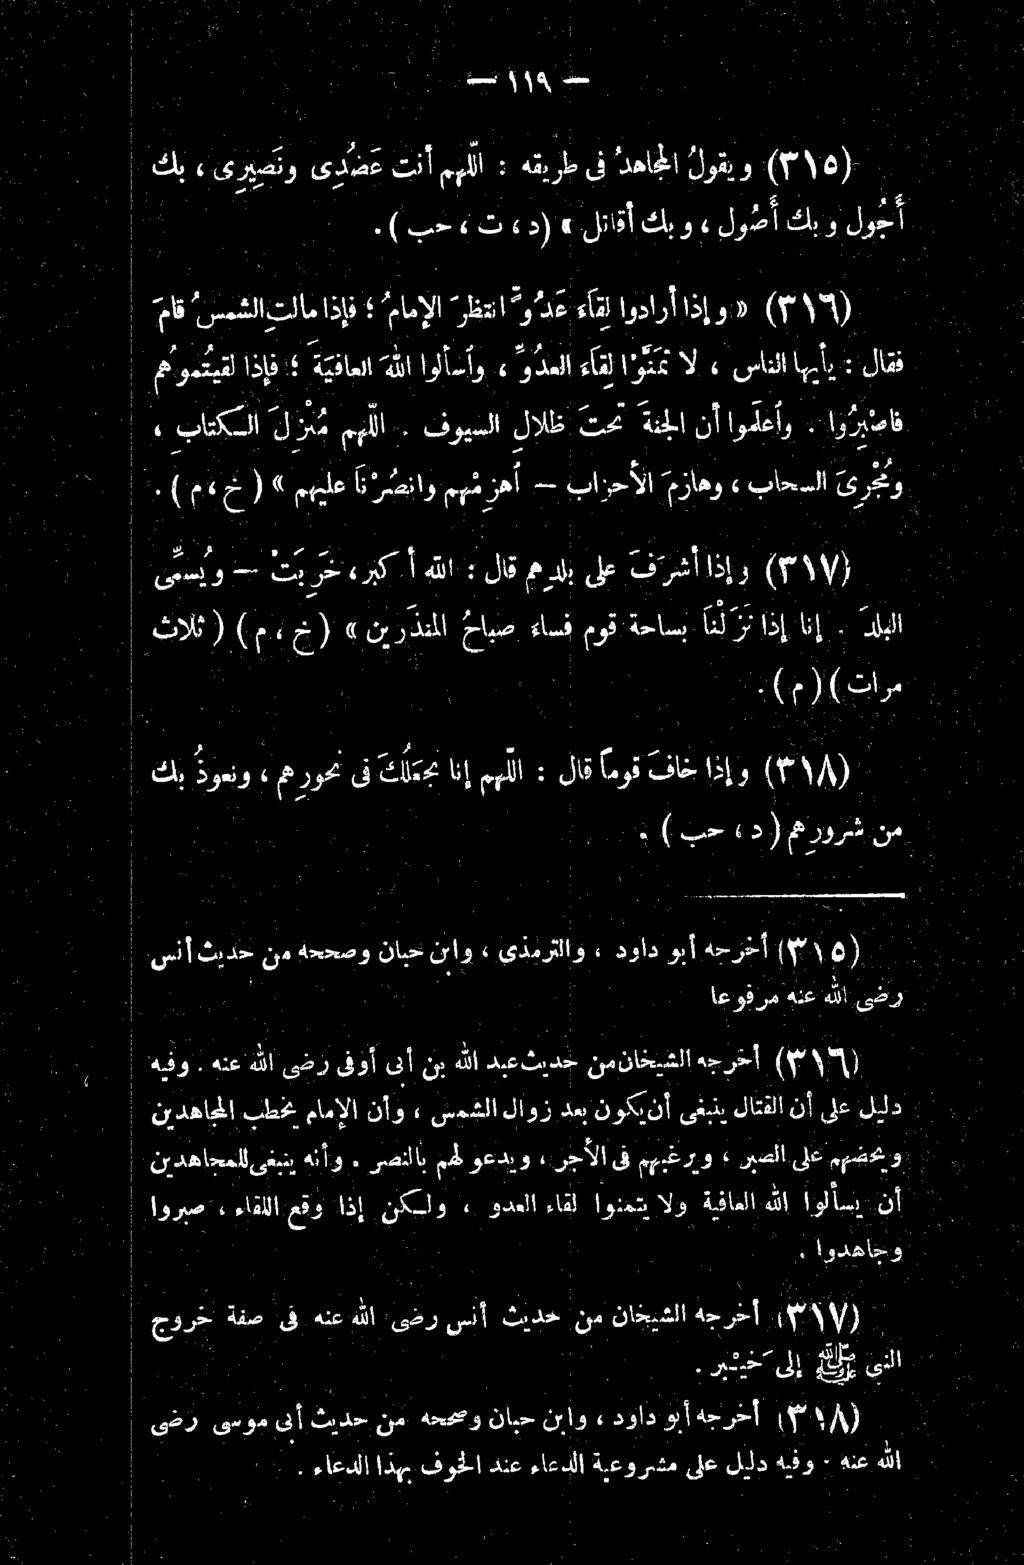 — ١١٩ —
(٣١٥) ويقولُ المجاهدُ فى طريقه : اللّهم أنت عَضُدِى ونَصِيرِى ، بك
أَجُول وبك أَصُول ، وبك أقاتل » (د ، ت ، حب ) .
(٣١٦) « وإذا أرادوا لِقَاءَ عَدُوٍّ انتظرَ الإمامُ ؛ فإذا مالتِ الشمسُ قامَ
فقال : يأيها الناس ، لا تمَنَّوْا لِقَاءَ العدُوِّ ، وٱسألوا اللهَ العافيَةَ ؛ فإذا لقيتُموهُم
فاصْبِرُوا . وٱعلَموا أن الجنةَ تحتَ ظلالِ السيوف . اللّهم مُنْزِلَ الكتابِ ،
ومُجْرِىَ السحاب ، وهازمَ الأحزاب — ٱهزِمْهم وانصُرْنَا عليهم » ( خ ، م ) .
(٣١٧) وإذا أشرَفَ على بلدِهم قال : الله أكبر ، خَرِبَتْ — ويُسمِّى
البلدَ . إنا إذا نَزَلْنَا بساحة قوم فساء صباحُ المنذَرين » ( خ ، م ) ( ثلاث
مرات ) ( م ) .
(٣١٨) وإذا خافَ قوماً قال : اللّهم إنا نجعَلُكَ فى نحورِهم ، ونعوذُ بك
من شرورِهم ( د ، حب ) .
(٣١٥) أخرجه أبو داود ، والترمذى ، وابن حبان وصححه من حديث أنس
رضى الله عنه مرفوعا
(٣١٦) أخرجه الشيخان من حديث عبد الله بن أبى أوفى رضى الله عنه . وفيه
دليل على أن القتال ينبغى أن يكون بعد زوال الشمس ، وأن الإمام يخطب المجاهدين
ويحضهم على الصبر ، ويرغبهم فى الأجر ، ويدعو لهم بالنصر . وأنه ينبغى للمجاهدين
أن يسألوا الله العافية ولا يتمنوا لقاء العدو ، ولكن إذا وقع اللقاء ، صبروا
وجاهدوا .
(٣١٧) أخرجه الشيخان من حديث أنس رضى الله عنه فى صفة خروج
النبى ﷺ إلى خَيْبر .
(٣١٨) أخرجه أبو داود ، وابن حبان وصححه من حديث أبى موسى رضى
الله عنه . وفيه دليل على مشروعية الدعاء عند الخوف بهذا الدعاء .